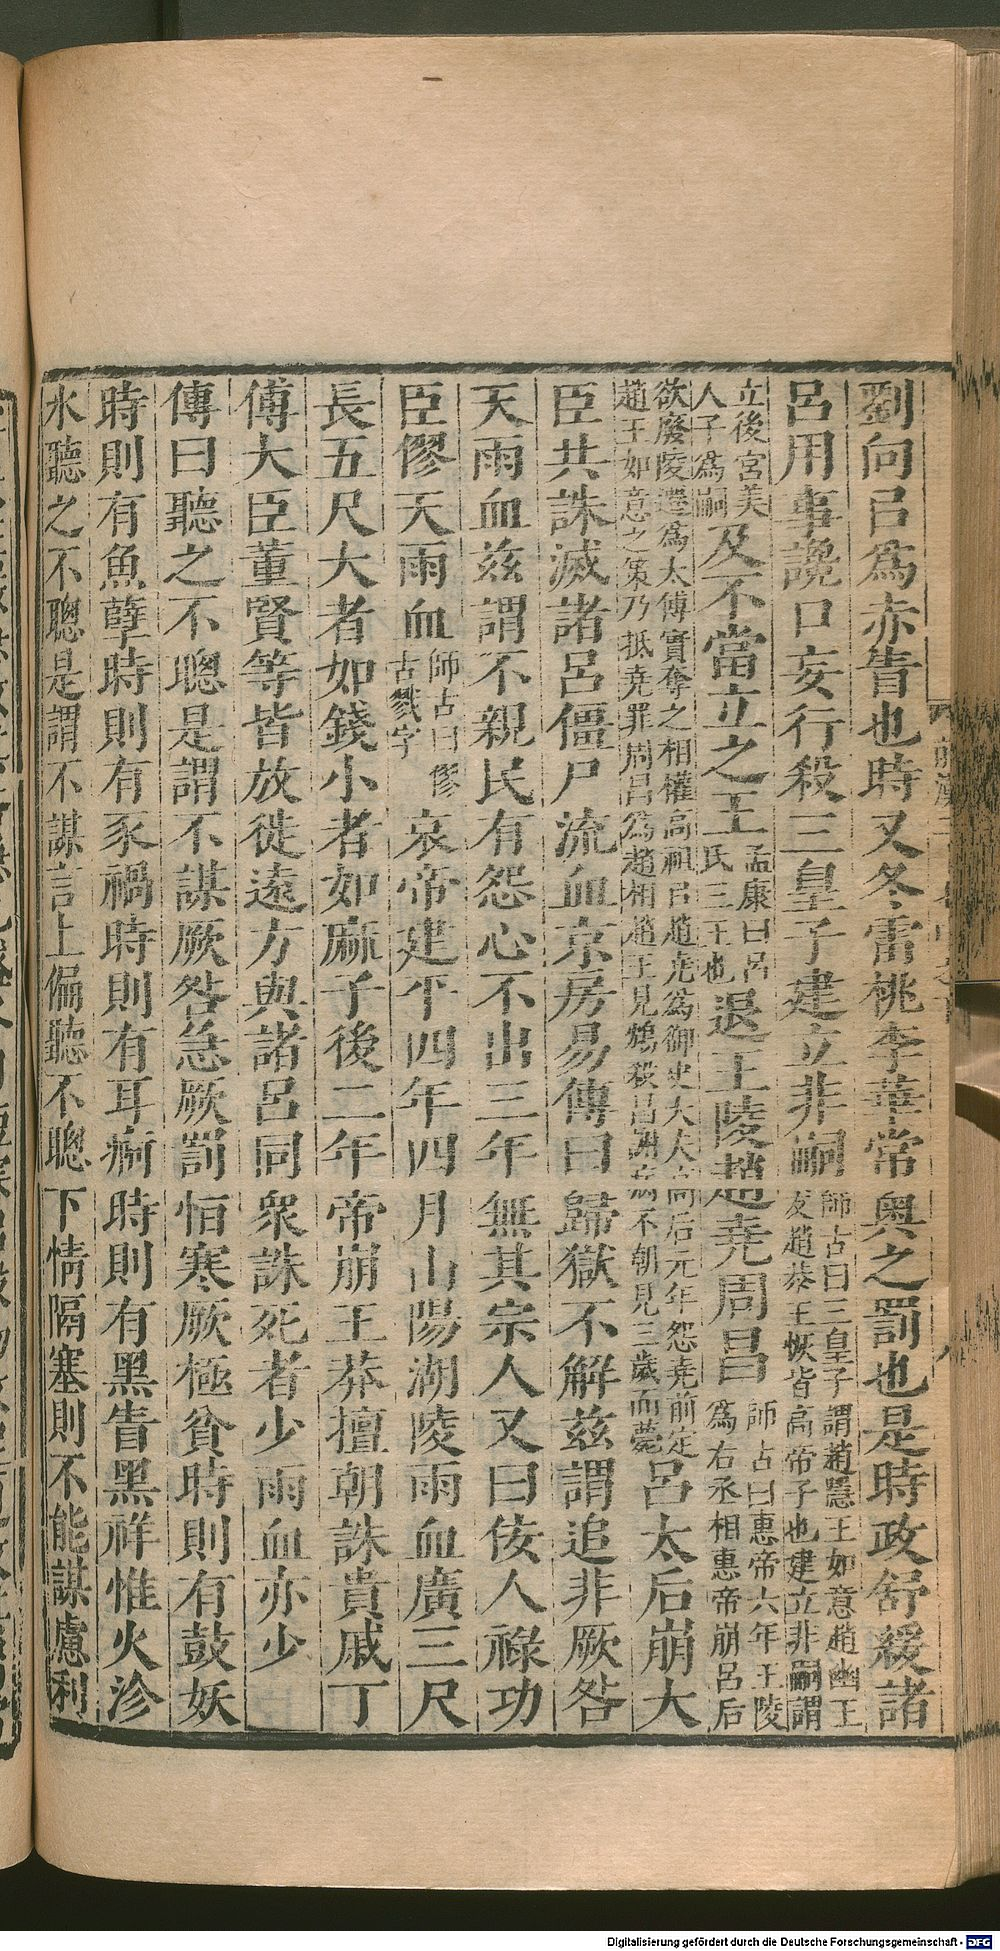 劉向㠯爲赤眚也時又冬雷桃李華常奥之罰也是時政舒緩諸
呂用事讒口妄行殺三皇子建立非嗣師古曰三皇子謂趙隱王如意趙幽王友趙恭王恢皆高帝子也建立非嗣謂
立後宮美人子爲嗣及不當立之王孟康曰呂氏三王也退王陵趙堯周昌師古曰惠帝六年王陵爲右丞相惠帝崩呂后
欲廢陵遷爲太傅實奪之相權高祖㠯趙堯爲御史大夫高后元年怨堯前定趙王如意之策乃抵堯罪周昌爲趙相趙王見鴆殺昌謝病不朝見三歲而薨呂太后崩大
臣共誅滅諸呂僵尸流血京房易傳曰歸獄不解茲謂追非厥咎
天雨血茲謂不親民有怨心不出三年無其宗人又曰佞人祿功
臣僇天雨血師古曰僇古戮字哀帝建平四年四月山陽湖陵雨血廣三尺
長五尺大者如錢小者如麻子後二年帝崩王莽擅朝誅貴戚丁
傅大臣董賢等皆放徙遠方與諸呂同衆誅死者少雨血亦少
傳曰聽之不聰是謂不謀厥咎急厥罰恒寒厥極貧時則有鼓妖
時則有魚孽時則有豕禍時則有耳痾時則有黑眚黑祥惟火沴
水聽之不聰是謂不謀言上偏聽不聰下情隔塞則不能謀慮利
Digitalisierung gefördert durch die Deutsche Forschungsgemeinschaft - DFG